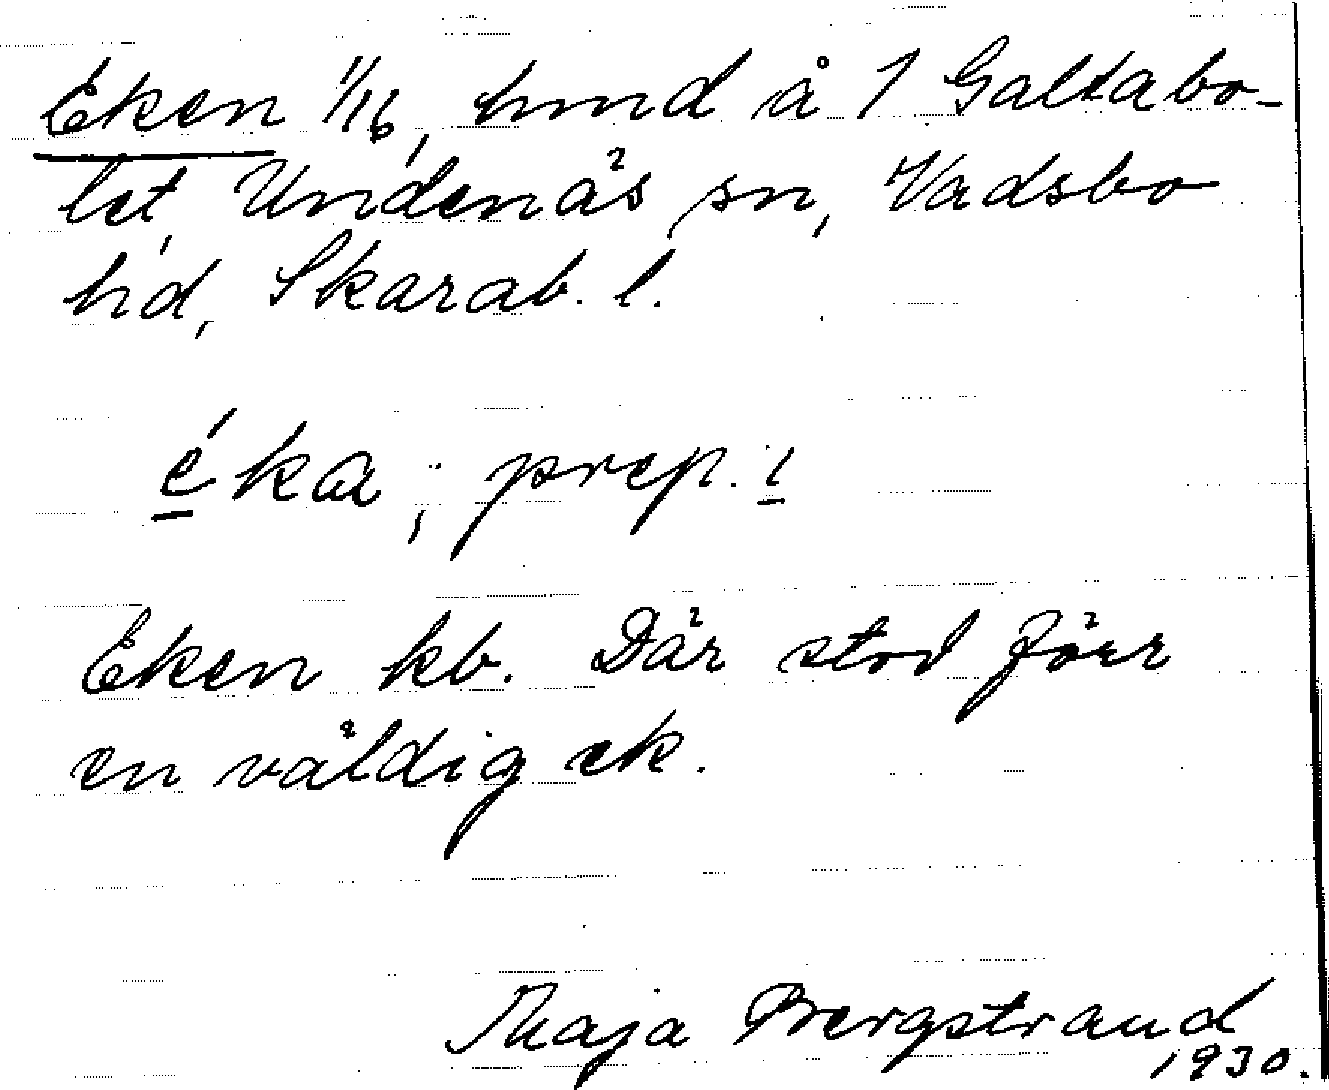 Eken 1/16, hmd å 1 Galtabo-
let, Undenäs sn, Vadsbo
hd, Skarab. l.
éka, prep. i
Eken kb. Där stod förr
en väldig ek.
Maja Bergstrand
1930.